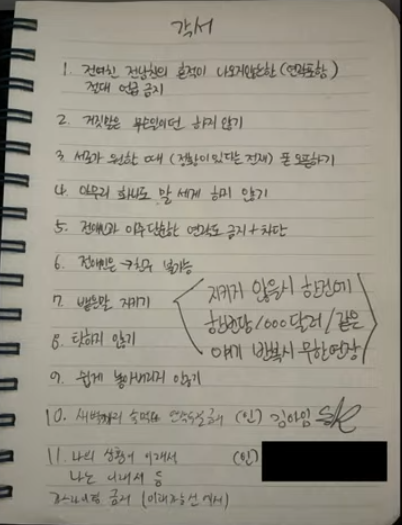 각서
1. 전여친 전남친의 흔적이 나오지않는한 (연락포함)
절대 언급 금지
2. 거짓말은 무슨일이던 하지 않기
3. 서로가 원할 때 (정황이 있다는 전제) 폰 오픈하기
4. 아무리 화나도 말 세게 하지 않기
5. 전애인과 아주 단순한 연락도 금지 + 차단
6. 전애인은 → 친구 불가능
7. 뱉은말 지키기
8. 탓하지 않기
지키지 않을시 한건에
한번당 1000달러 / 같은
얘기 반복시 무한연장
9. 쉽게 놓아버리지 않기
10. 새벽까지 술먹고 연락두절 금지 (인) 김아임
11. 나의 상황이 이래서 (인)
나는 이래서 등
금지 (미래지향선에서)